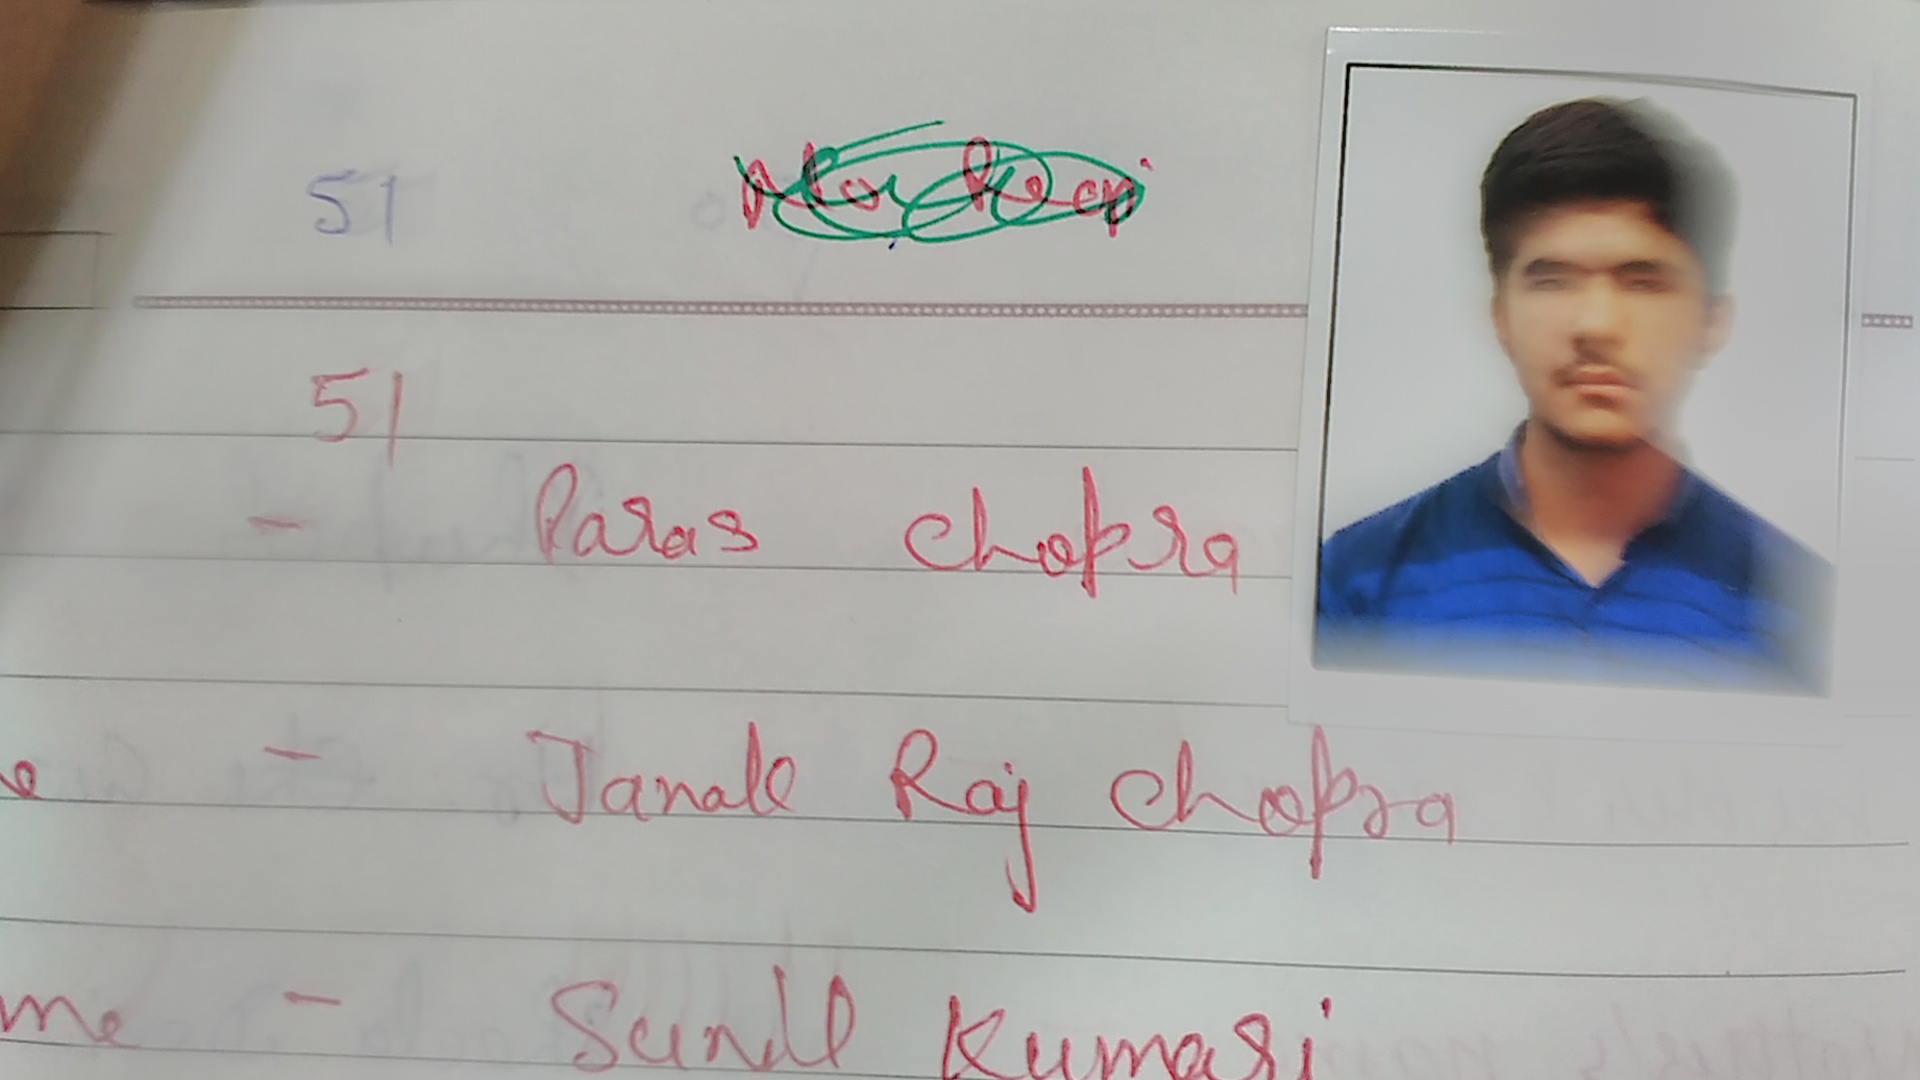 51
51
- Paras Chopra
e - Janak Raj Chopra
me - Kumari